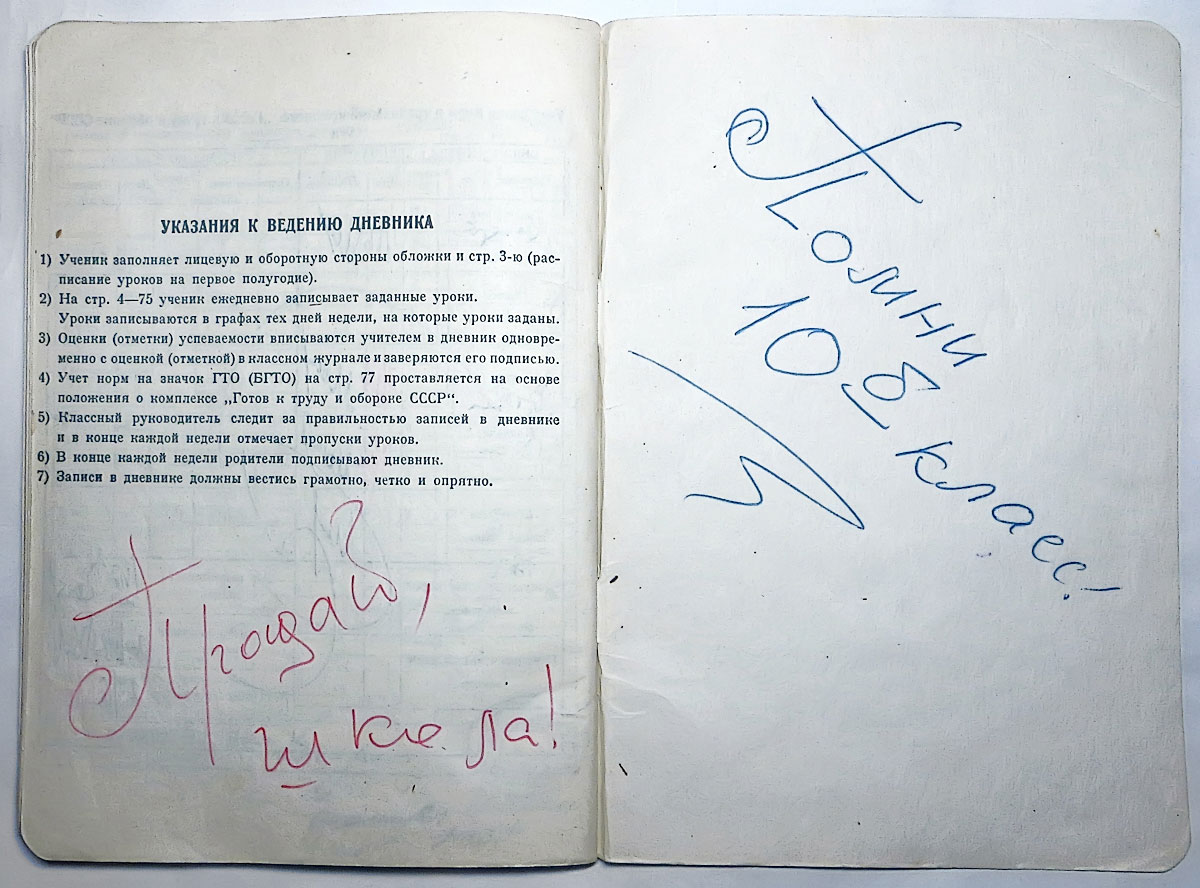 УКАЗАНИЯ К ВЕДЕНИЮ ДНЕВНИКА
1) Ученик заполняет лицевую и оборотную стороны обложки и стр. 3-ю (рас-
писание уроков на первое полугодие).
2) На стр. 4—75 ученик ежедневно записывает заданные уроки.
Уроки записываются в графах тех дней недели, на которые уроки заданы.
3) Оценки (отметки) успеваемости вписываются учителем в дневник одновре-
менно с оценкой (отметкой) в классном журнале и заверяются его подписью.
4) Учет норм на значок ГТО (БГТО) на стр. 77 проставляется на основе
положения о комплексе „Готов к труду и обороне СССР“.
5) Классный руководитель следит за правильностью записей в дневнике
и в конце каждой недели отмечает пропуски уроков.
6) В конце каждой недели родители подписывают дневник.
7) Записи в дневнике должны вестись грамотно, четко и опрятно.
Прощай,
школа!
Помни
10 в
класс!